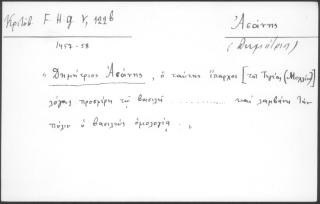 Κριτόβ. F H G V, 122b
Ἀσάνης
(Δημήτριος)
1457-58
" Δημήτριος Ἀσάνης, ὁ ταύτης ἔπαρχος [τοῦ Τεγέας (Μουχλίου)]
λόγους προσφέρει τῷ βασιλεῖ .......... καὶ λαμβάνει τὴν
πόλιν ὁ βασιλεὺς ὁμολογίᾳ . „